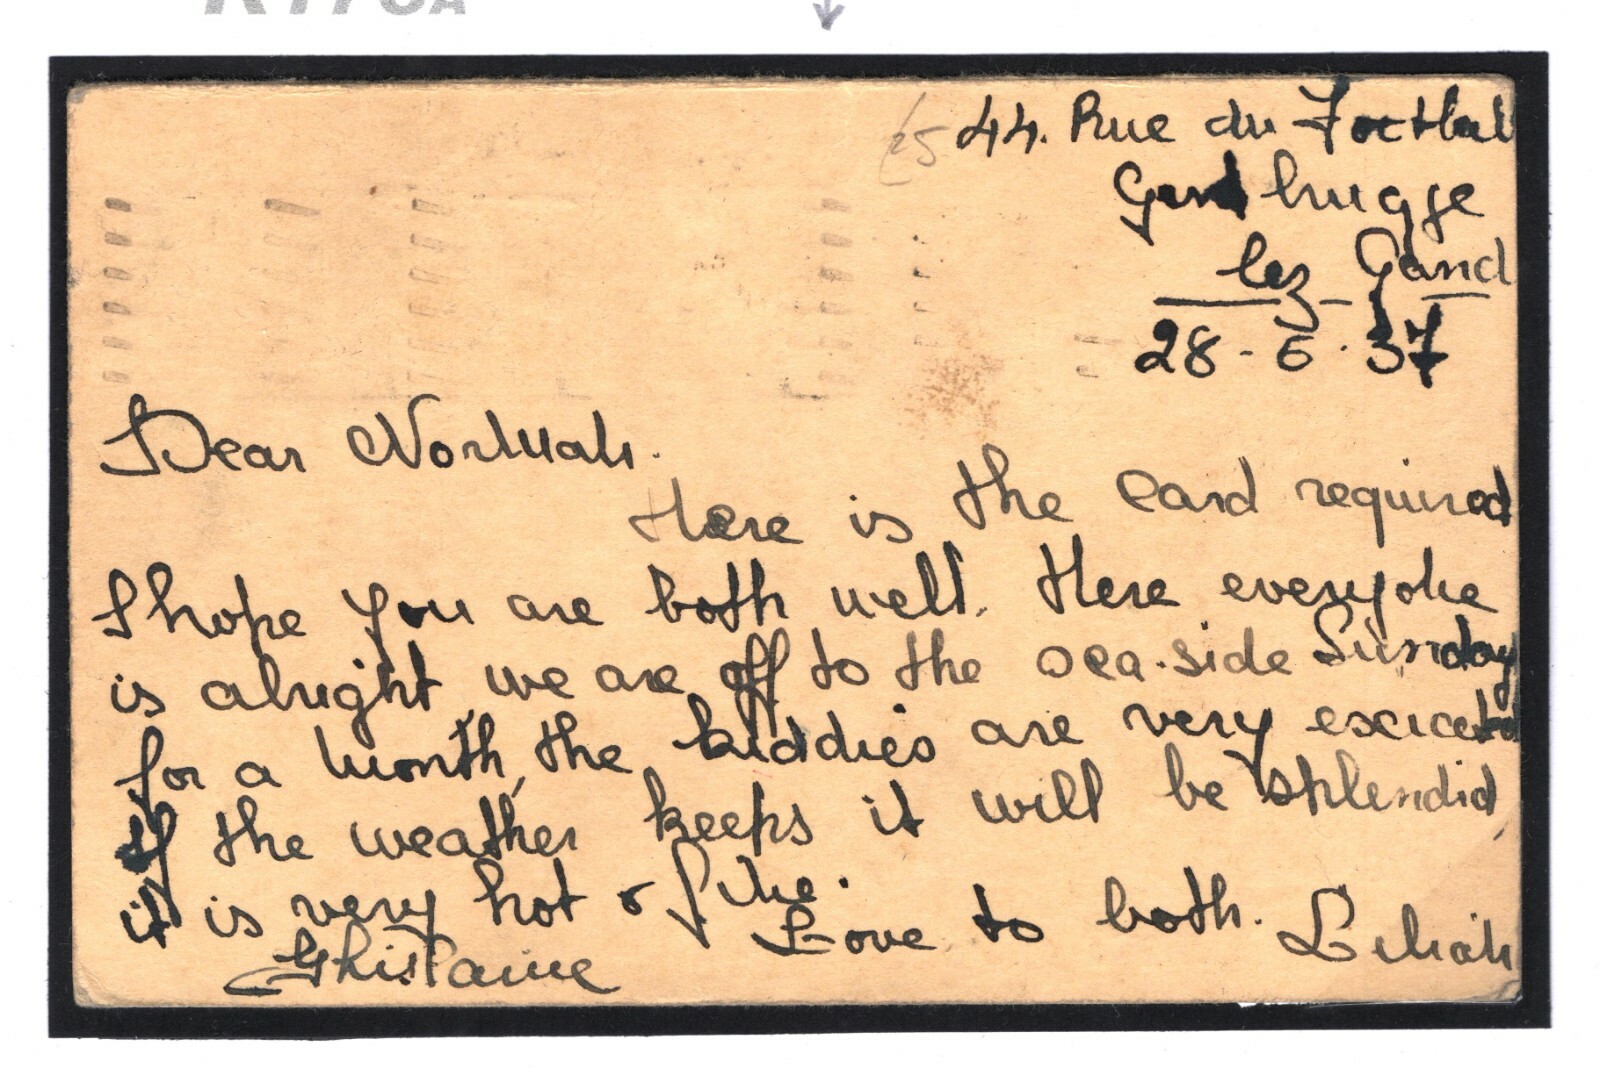 £25 44. Rue du Football
Gendbrugge
lez Gand
28-6.37
Dear Norman.
Here is the card required
I hope you are both well. Here everyone
is alright, we are off to the sea-side Sunday
for a month, the kiddies are very exiceted
if the weather keeps it will be splendid,
it is very hot & fine.
Love to both. Lilian
Ghislaine